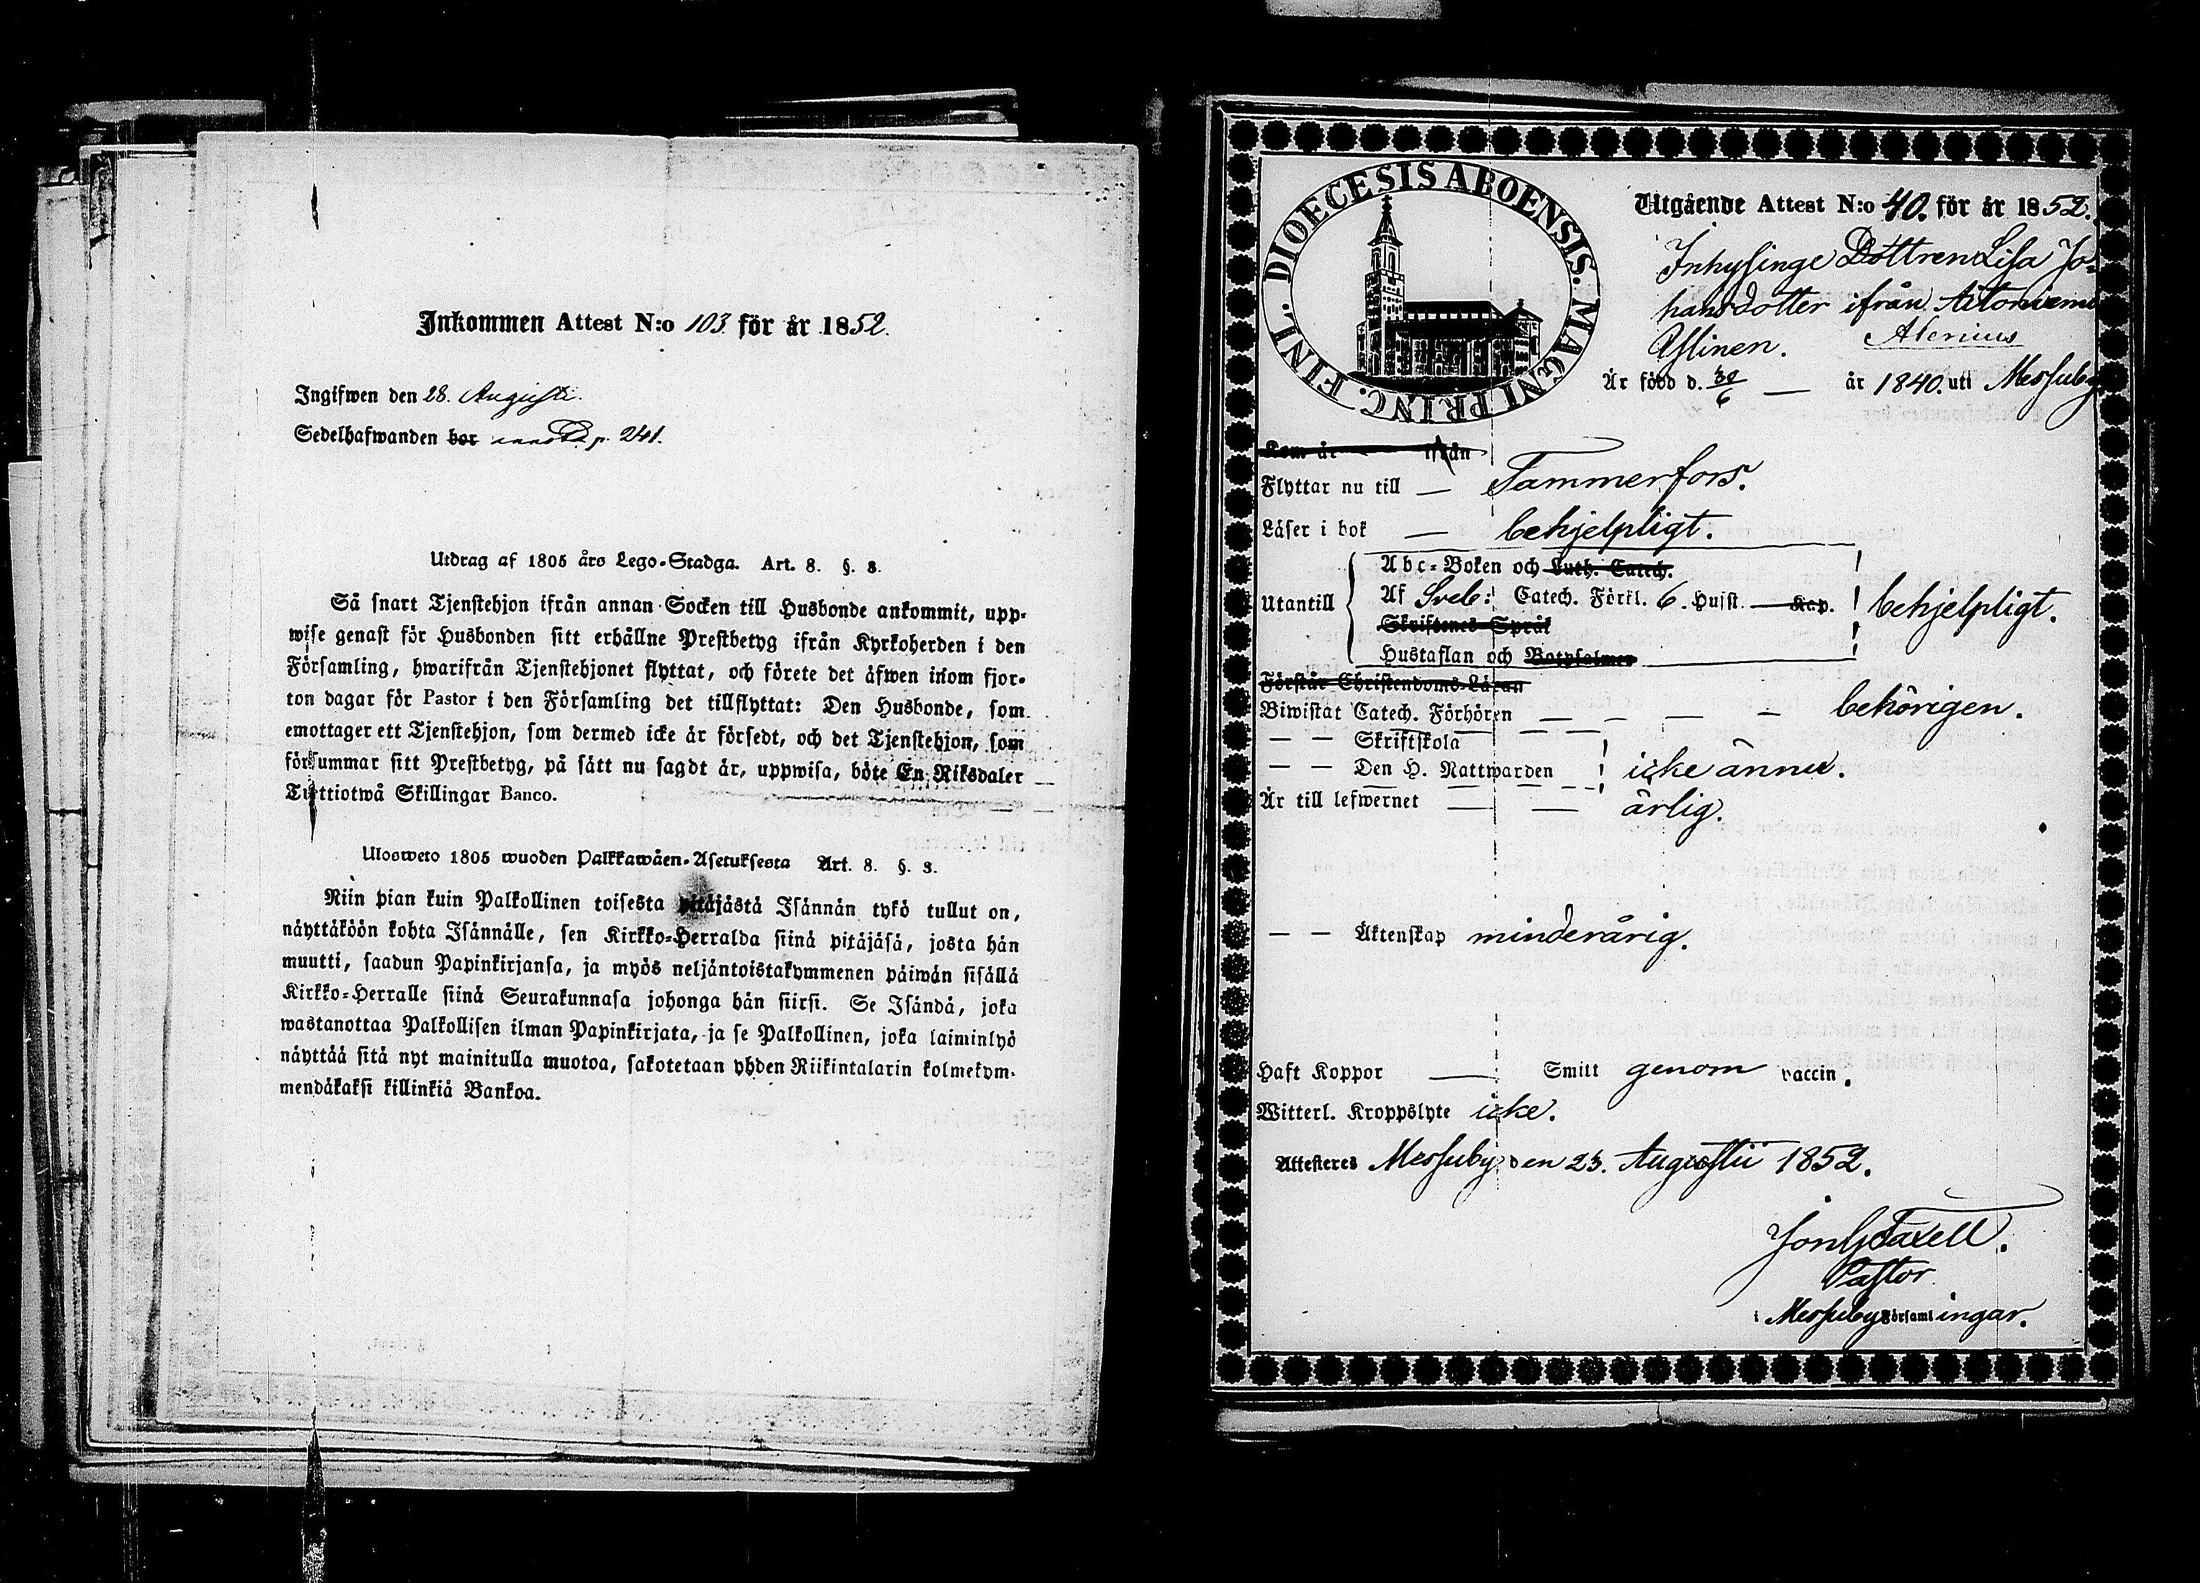 Inkommen Attest N:o 103. för år 1852.
Ingifwen den 28. Augusti.
Sedelhafwanden bor p. 241.
Utdrag af 1805 års Lego-Stadga. Art. 8. §. 3.
Så snart Tjenstehjon ifrån annan Socken till Husbonde ankommit, upp-
wise genast för Husbonden sitt erhållne Prestbetyg ifrån Kyrkoherden i den
Församling, hwarifrån Tjenstehjonet flyttat, och förete det äfwen inom fjor-
ton dagar för Pastor i den Församling det tillflyttat: Den Husbonde, som
emottager ett Tjenstehjon, som dermed icke är försedt, och det Tjenstehjon, som
försummar sitt Prestbetyg, på sätt nu sagdt är, uppwisa, böte En Riksdaler
Trettiotwå Skillingar Banco.
Ulosweto 1805 wuoden Palkkawäen-Asetuksesta Art. 8. §. 3.
Niin pian kuin Palkollinen toisesta pitäjästä Isännän tykö tullut on,
näyttäköön kohta Isännälle, sen Kirkko-Herralda siinä pitäjäsä, josta hän
muutti, saadun Papinkirjansa, ja myös neljäntoistakymmenen päiwän sisällä
Kirkko-Herralle siinä Seurakunnasa johonga hän siirsi. Se Isändä, joka
wastanottaa Palkollisen ilman Papinkirjata, ja se Palkollinen, joka laiminlyö
näyttää sitä nyt mainitulla muotoa, sakotetaan yhden Riikintalarin kolmekym-
mendäkaksi killinkiä Bankoa.
DIOECESIS ABOENSIS. MAGNI PRINC. FINL.
Utgående Attest N:o 40. för år 1852.
Inhysinge Dottren Lisa Jo-
hansdotter ifrån Aitoniemi
Ylinen.
Är född d. 30/6 — år 1840. uti Messuby
Kom år ifrån
Flyttar nu till — Tammerfors.
Läser i bok — behjelpligt.
Abc-Boken och Luth. Catech.
Utantill Af Sveb: Catech. Förkl. 6. Hufst. — Kap. behjelpligt.
Skriftenes Språk
Hustaflan och Botpsalmer
Förstår Christendoms-Läran
Biwistat Catech. Förhören — — — — behörigen.
— — Skriftskola
— — Den H. Nattwarden icke ännu.
Är till lefwernet — — ärlig.
— — Äktenskap minderårig.
Haft Koppor — Smitt genom vaccin.
Witterl. Kroppslyte icke.
Attesteres Messuby, den 23. Augustii 1852.
Pastor
i Messuby Församlingar.